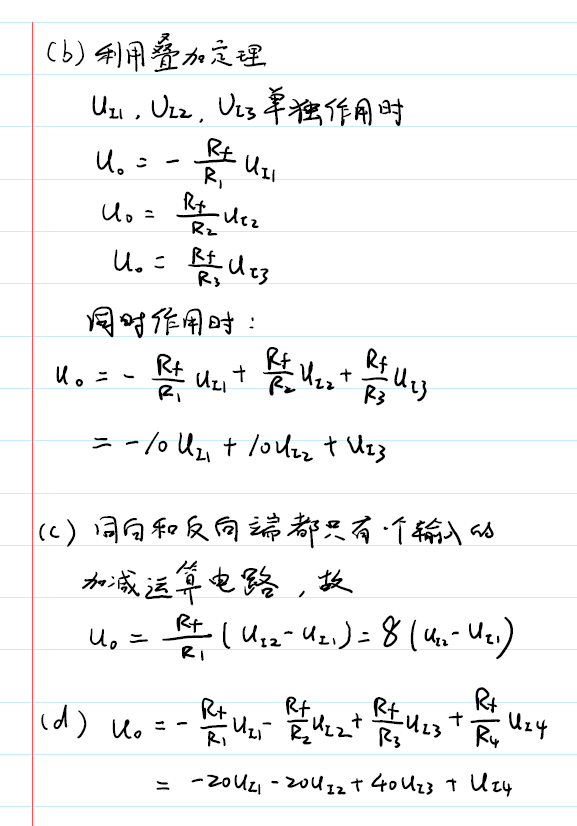 (b) 利用叠加定理
U_{I1}, U_{I2}, U_{I3} 单独作用时
u_o = - \frac{R_f}{R_1} u_{I1}
u_o = \frac{R_f}{R_2} u_{I2}
u_o = \frac{R_f}{R_3} u_{I3}
同时作用时:
u_o = - \frac{R_f}{R_1} u_{I1} + \frac{R_f}{R_2} u_{I2} + \frac{R_f}{R_3} u_{I3}
= -10 u_{I1} + 10 u_{I2} + u_{I3}
(c) 同向和反向端都只有一个输入的
加减运算电路,故
u_o = \frac{R_f}{R_1} ( u_{I2} - u_{I1} ) = 8 ( u_{I2} - u_{I1} )
(d) u_o = - \frac{R_f}{R_1} u_{I1} - \frac{R_f}{R_2} u_{I2} + \frac{R_f}{R_3} u_{I3} + \frac{R_f}{R_4} u_{I4}
= -20 u_{I1} - 20 u_{I2} + 40 u_{I3} + u_{I4}